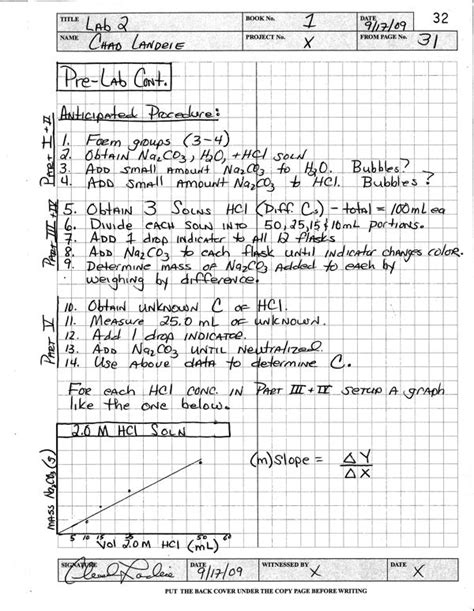 TITLE LAB 2 BOOK No. 1 DATE 9/17/09 32
NAME CHAD LANDRIE PROJECT No. X FROM PAGE No. 31
PRE-LAB CONT.
ANTICIPATED PROCEDURE:
PART I + II
1. FORM groups (3-4)
2. OBTAIN Na₂CO₃, H₂O, + HCl SOLN
3. ADD small AMOUNT Na₂CO₃ to H₂O. Bubbles?
4. ADD SMALL AMOUNT Na₂CO₃ to HCl. Bubbles?
PART III + IV
5. OBTAIN 3 SOLNS HCl (Diff. Cs) - total = 100mL ea
6. DIVIDE EACH SOLN INTO 50, 25, 15 & 10mL PORTIONS.
7. ADD 1 drop INDICATOR to All 12 flasks
8. ADD Na₂CO₃ to each flask UNTIL INDICATOR changes color.
9. DETERMINE MASS OF Na₂CO₃ ADDED to each by
weighing by difference.
PART V
10. OBTAIN UNKNOWN C OF HCl.
11. MEASURE 25.0 mL OF UNKNOWN.
12. ADD 1 drop INDICATOR.
13. ADD Na₂CO₃ UNTIL NEUTRALIZED.
14. USE ABOVE DATA to determine C.
FOR EACH HCl CONC. IN PART III + IV SETUP A graph
like the one below.
2.0 M HCl SOLN
(m) Slope = ΔY
ΔX
MASS Na₂CO₃ (g)
5 10 15 50 60
Vol 2.0 M HCl (mL)
SIGNATURE DATE 9/17/09 WITNESSED BY X DATE X
PUT THE BACK COVER UNDER THE COPY PAGE BEFORE WRITING